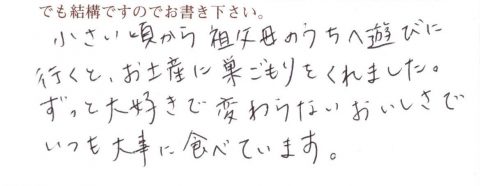 でも結構ですのでお書き下さい。
小さい頃から祖父母のうちへ遊びに
行くと、お土産に巣ごもりをくれました。
ずっと大好きで変わらないおいしさで
いつも大事に食べています。